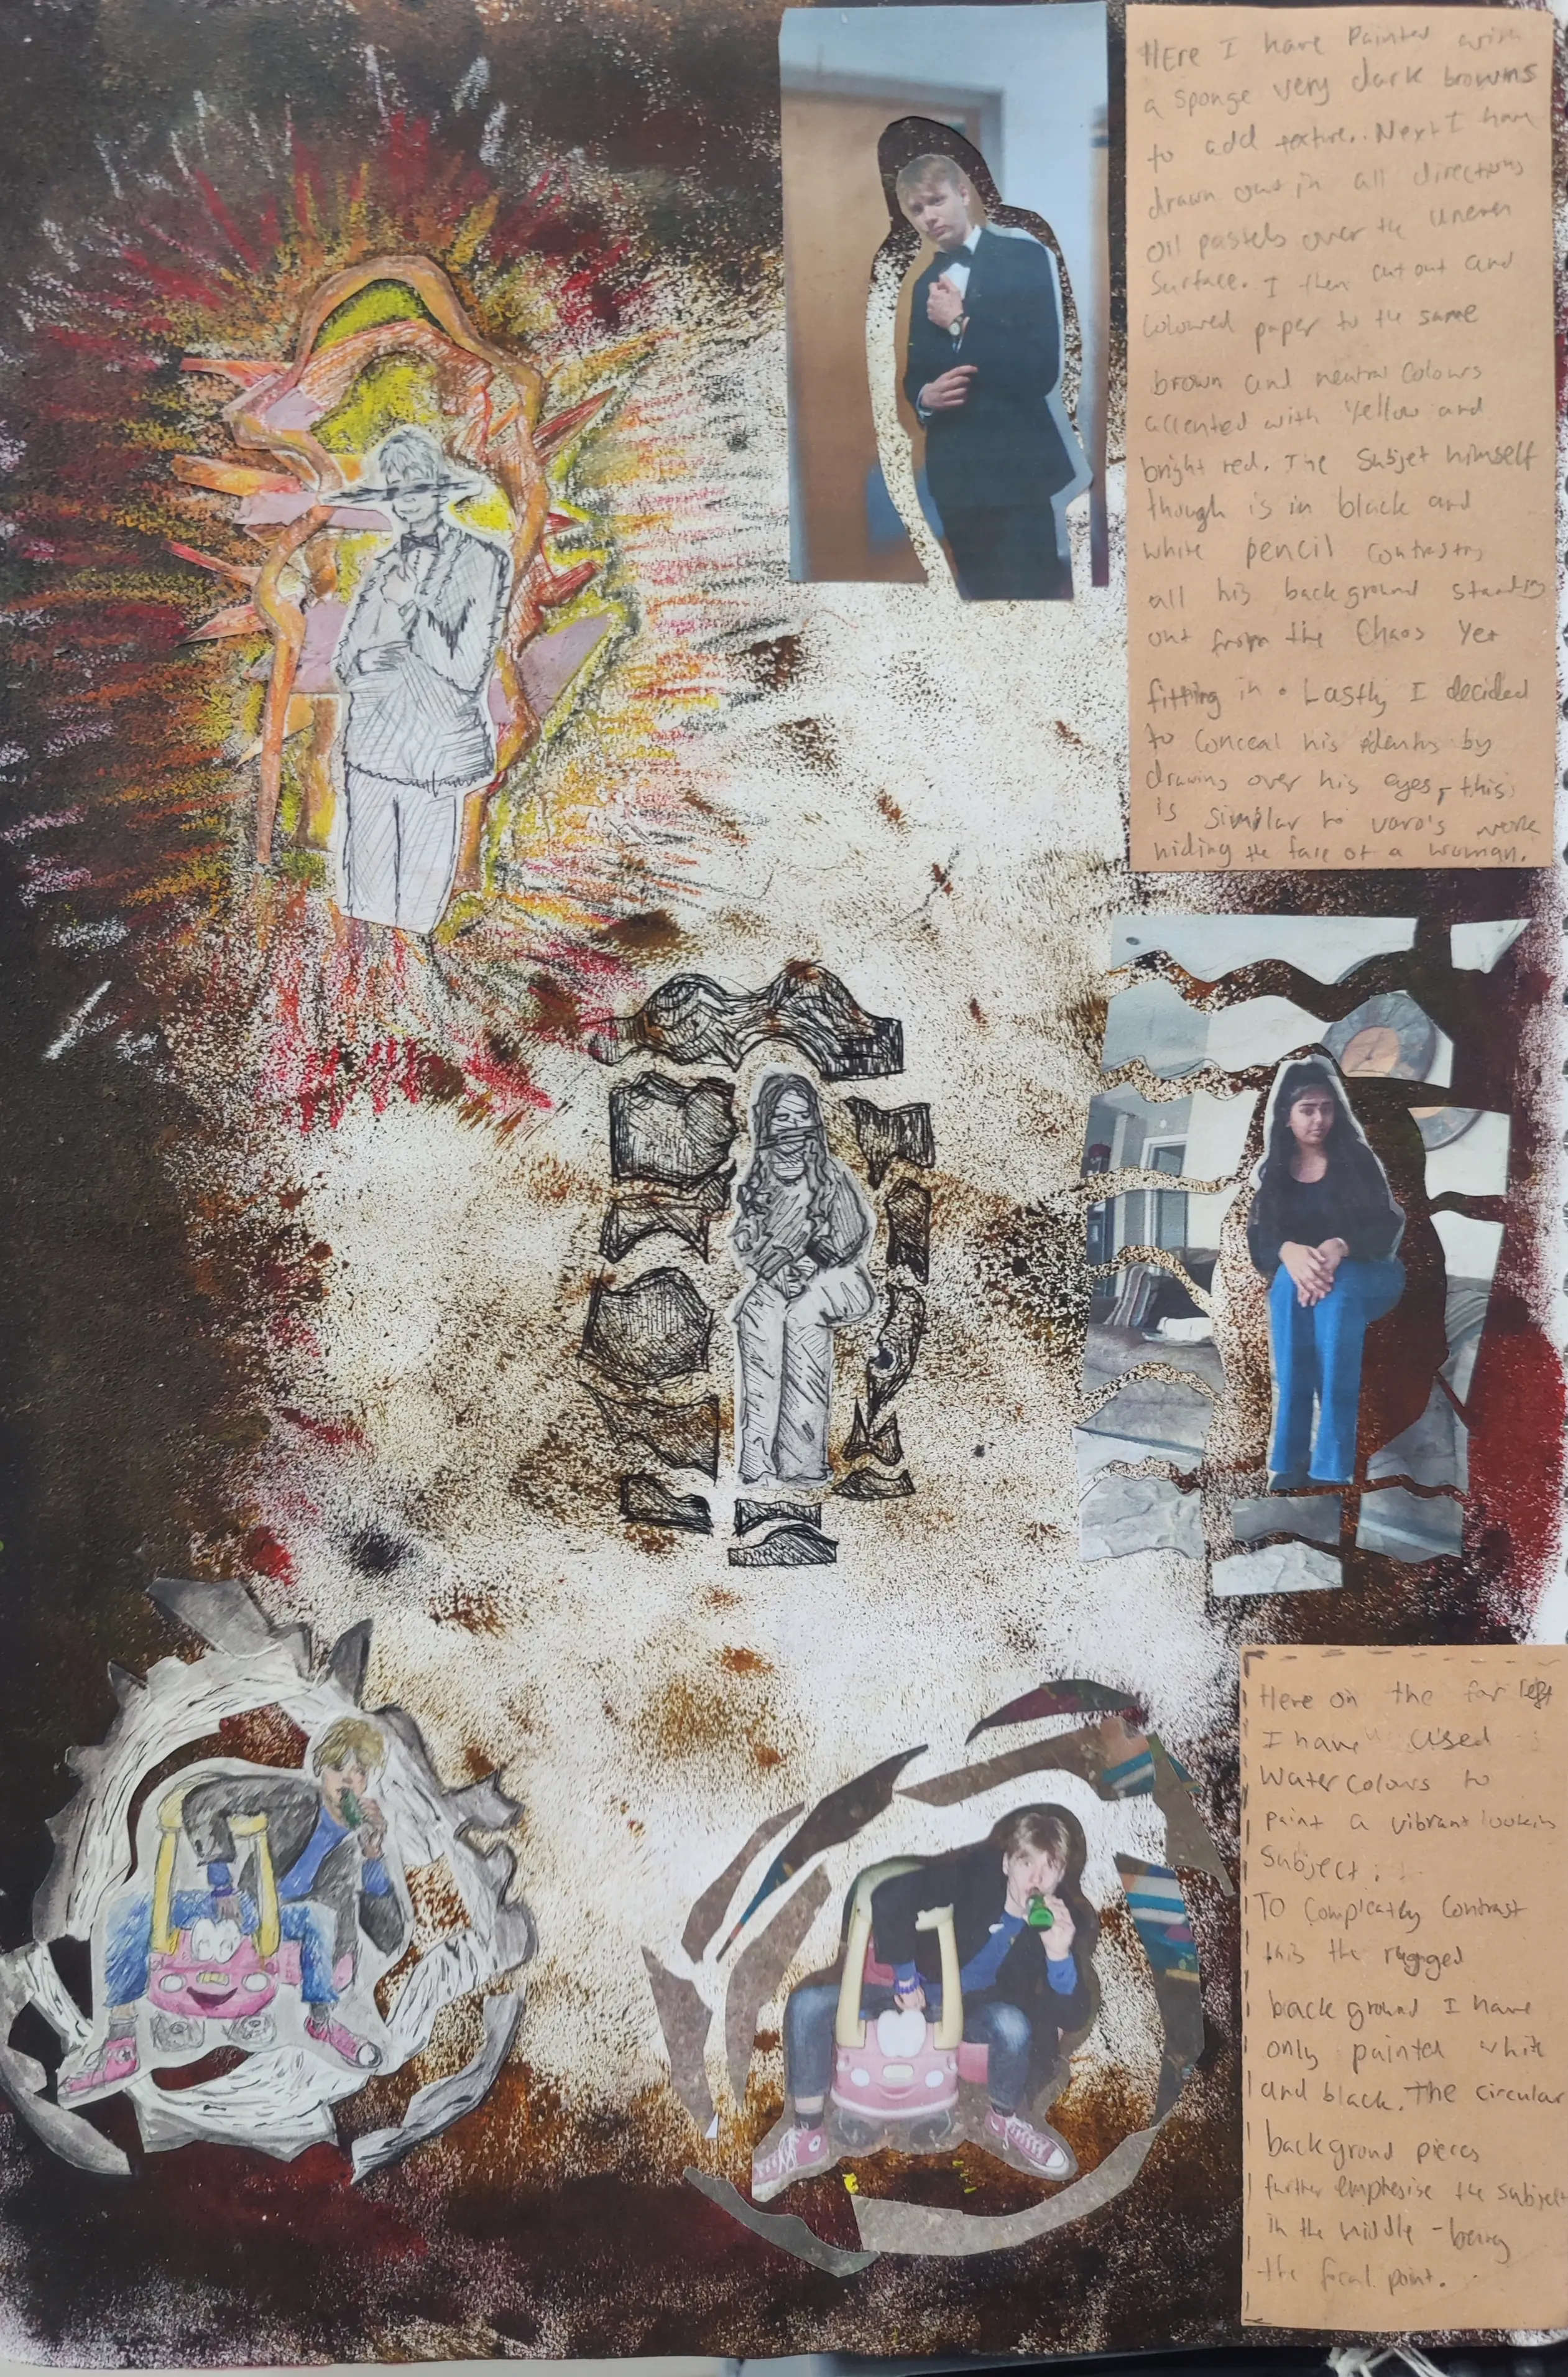 HEre I have Painted with
a sponge very dark browns
to add texture. Next I have
drawn out in all directions
oil pastels over the uneven
Surface. I then cut out and
coloured paper to the same
brown and neutral colours
accented with Yellow and
bright red. The Subjet himself
though is in black and
white pencil contrasting
all his background standing
out from the Chaos Yet
fitting in. Lastly I decided
to conceal his by
drawing over his eyes, this
is similar to varo's work
hiding the face of a woman.
Here on the far left
I have used
Watercolours to
paint a vibrant looking
Subject.
TO contrast
this the rugged
background I have
only painted white
and black. The circular
background pieces
further emphesise the subject
in the middle - being
the focal point.